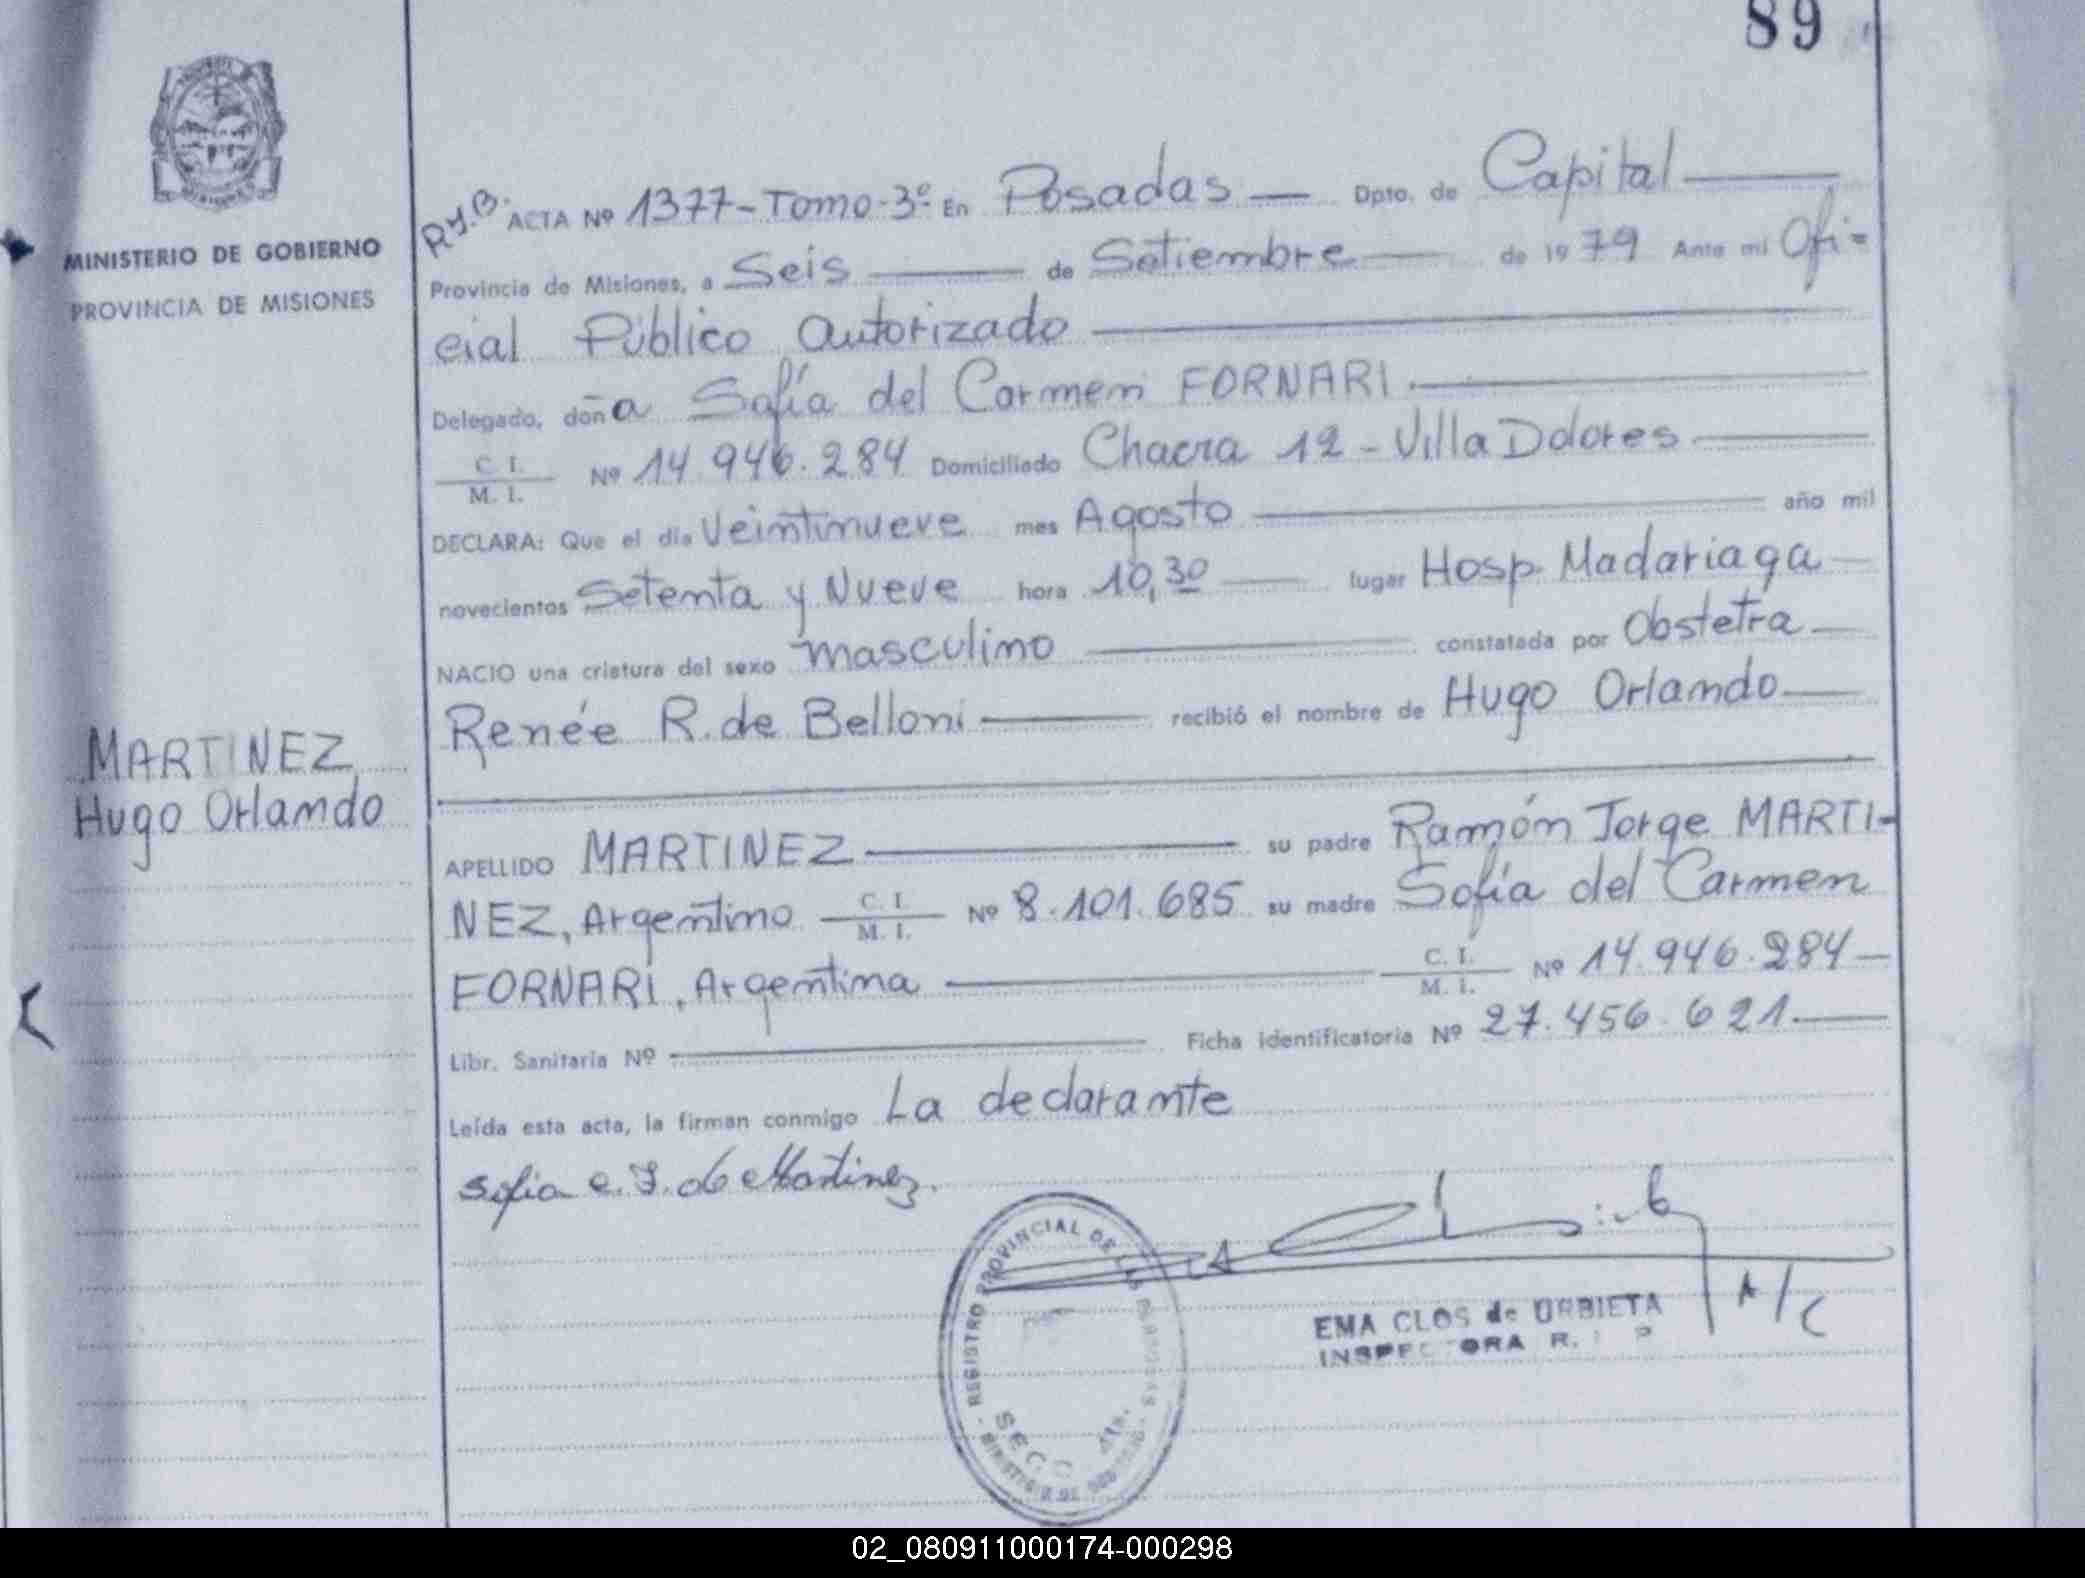 89
MINISTERIO DE GOBIERNO
PROVINCIA DE MISIONES
R.y.B. ACTA Nº 1377-Tomo-3º En Posadas — Dpto. de Capital —
Provincia de Misiones, a Seis — de Setiembre — de 1979 Ante mi Ofi-
cial Público Autorizado —
Delegado, doña Sofía del Carmen FORNARI. —
C. I.
M. I. Nº 14.946.284 Domiciliado Chacra 12 - Villa Dolores —
DECLARA: Que el día Veintinueve mes Agosto — año mil
novecientos Setenta y Nueve hora 10,30 — lugar Hosp. Madariaga —
NACIO una criatura del sexo masculino — constatada por Obstetra —
Renée R. de Belloni — recibió el nombre de Hugo Orlando —
MARTINEZ
Hugo Orlando
APELLIDO MARTINEZ — su padre Ramón Jorge MARTI-
NEZ, Argentino C. I.
M. I. Nº 8.101.685 su madre Sofía del Carmen
FORNARI, Argentina — C. I.
M. I. Nº 14.946.284 —
Libr. Sanitaria Nº — Ficha identificatoria Nº 27.456.621. —
Leída esta acta, la firman conmigo La declarante
Sofia C. F. de Martinez.
REGISTRO PROVINCIAL DE LAS PERSONAS
A/C
EMA CLOS de URBIETA
INSPECTORA R. P
02_080911000174-000298